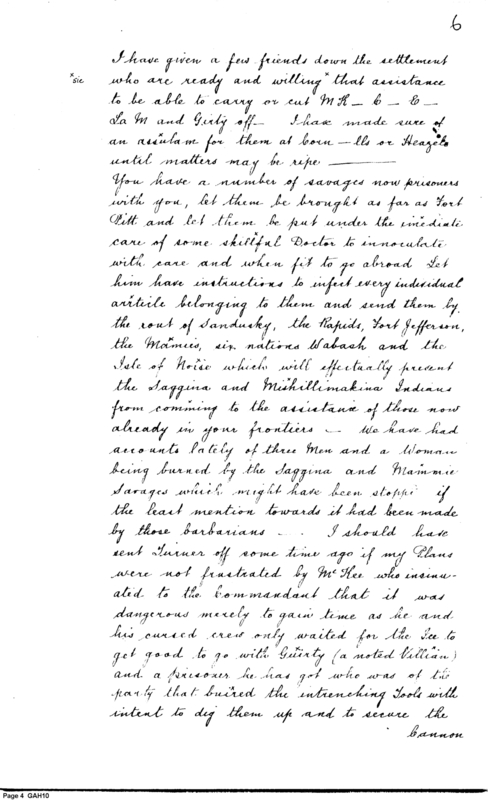 6
I have given a few friends down the settlement
xsic who are ready and willing x that assistance
to be able to carry or cut McK — C — E —
La M and Girty off — I have made sure of
an assulam for them at Corn — lls or Heazels
until matters may be ripe ———
You have a number of savages now prisoners
with you, let them be brought as far as Fort
Pitt and let them be put under the imediate
care of some skillful Doctor to innoculate
with care and when fit to go abroad Let
him have instructions to infect every individual
arteile belonging to them and send them by
the rout of Sandusky, the Rapids, Fort Jefferson,
the Mamies, six nations Wabash and the
Isle of Noise which will effectually prevent
the Saggina and Mishillimakina Indians
from comming to the assistance of those now
already in your frontiers — We have had
accounts lately of three Men and a Woman
being burned by the Saggina and Mammie
Savages which might have been stopt if
the least mention towards it had been made
by those barbarians ... I should have
sent Turner off some time ago if my Plans
were not frustrated by McKee who insinu-
ated to the Commandant that it was
dangerous merely to gain time as he and
his cursed crew only waited for the Ice to
get good to go with Guirty (a noted Villian)
and a prisoner he has got who was of the
party that buired the intrenching Tools with
intent to dig them up and to secure the
Cannon
Page 4 GAH10